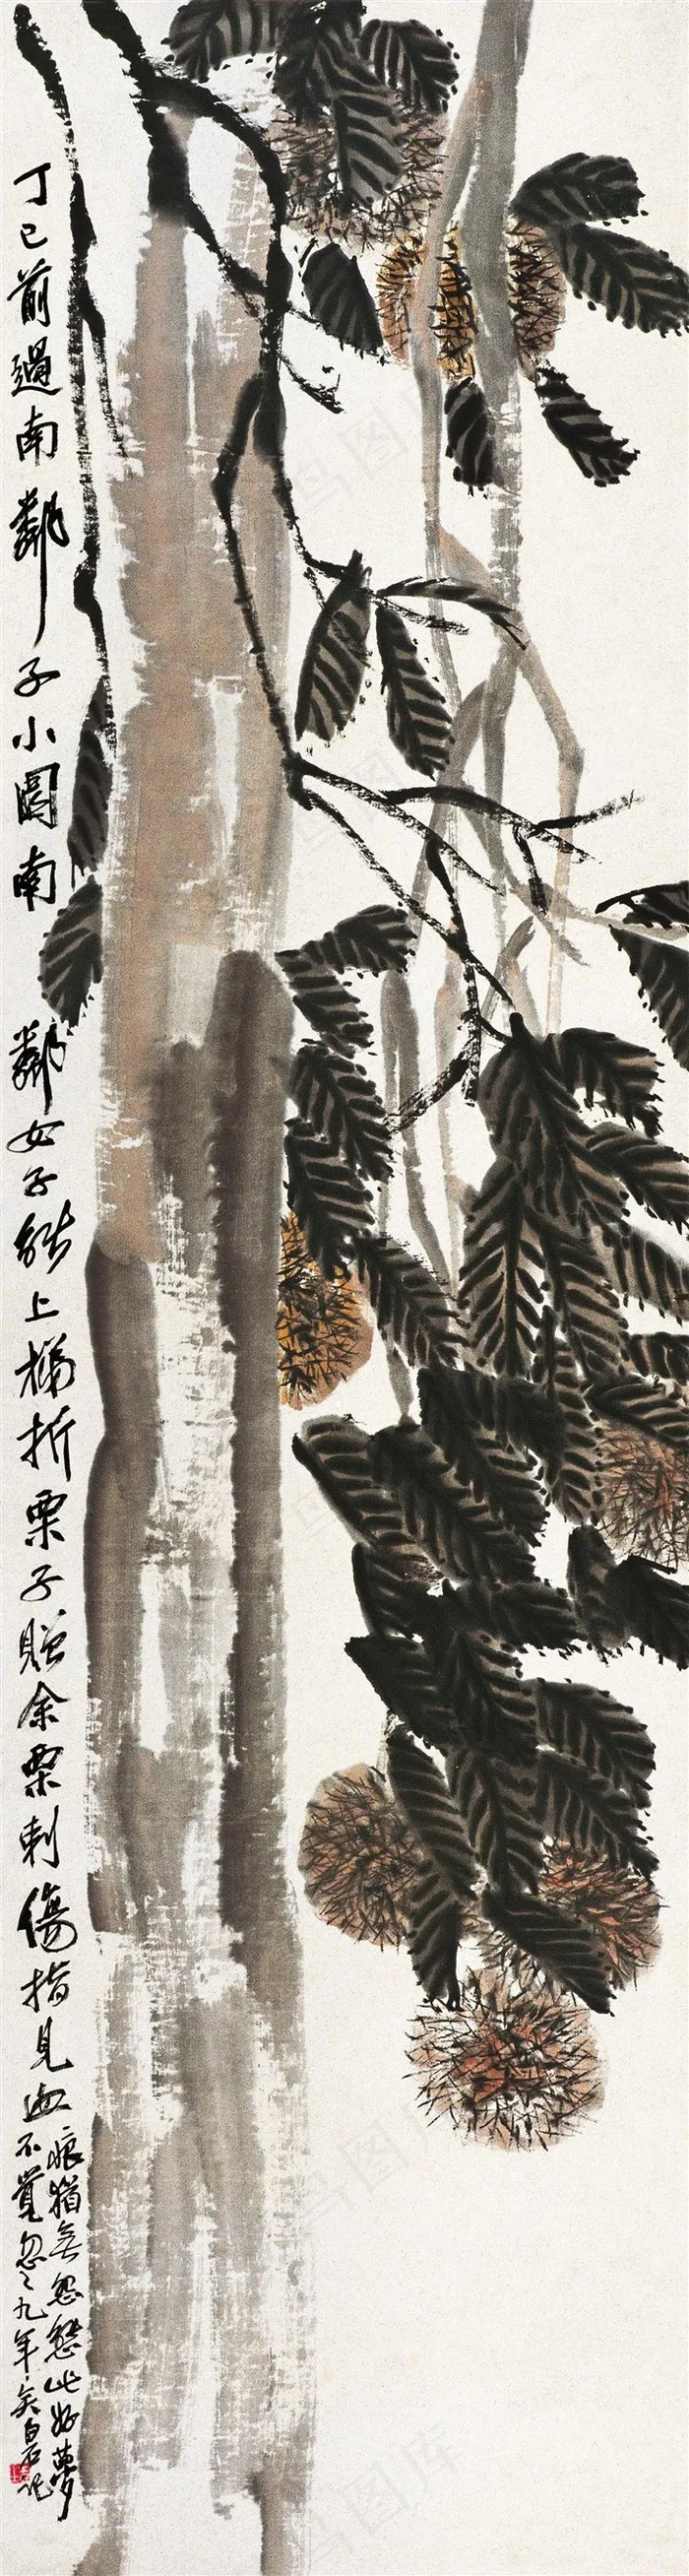 丁巳前過南鄰子小園南鄰女子能上梯折栗子贈余栗刺傷指見血
痕猶無怨態此好夢
不覺忽〻九年矣白石記